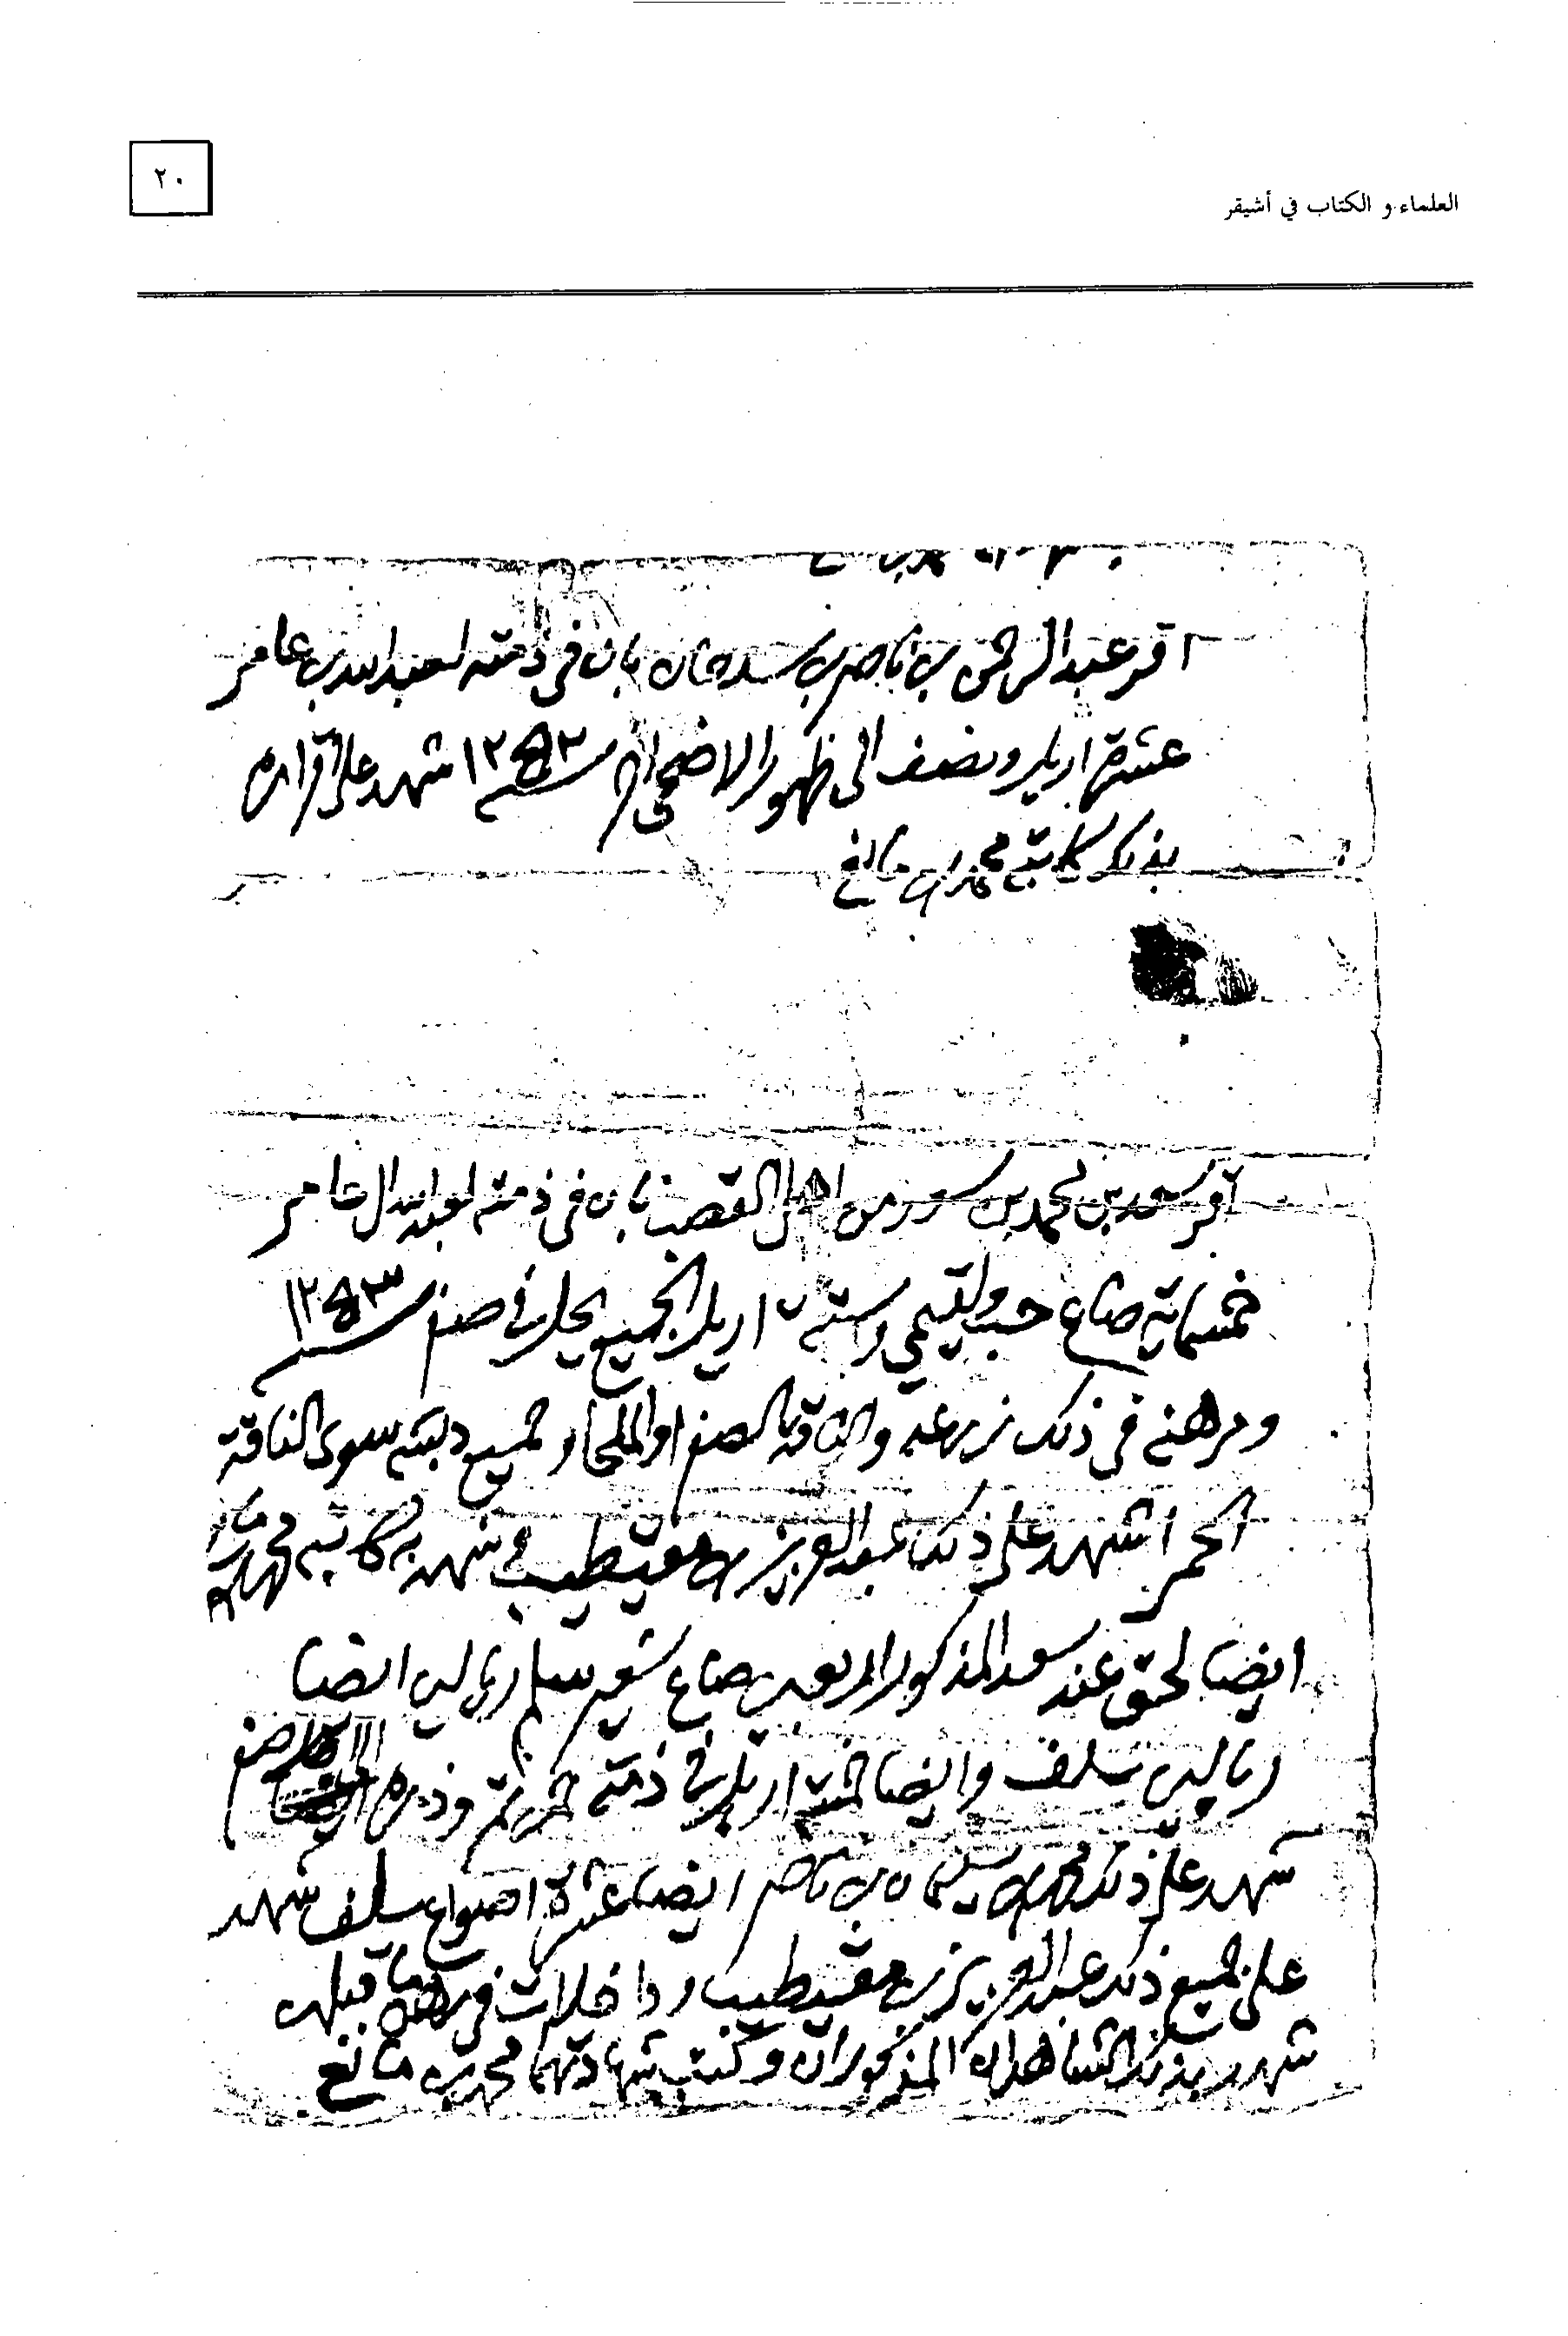 العلماء و الكتاب في أشيقر
٢٠
اقر عبدالرحمن بن ناصر بن سدحان بان في ذمته لعبدالله بن عامر
عشرة اريل ونصف الى ظهور الاضحى ١٢٥٢ شهد على اقراره
بذلك كاتبه محمد بن مانع
اقر سعد بن محمد بن سعود من اهل القصب بان في ذمته لعبدالله ال عامر
خمسماية صاع حب ولقيمي وستة اريل الجميع يحلن في صفر ١٢٥٣
ورهنه في ذلك زرعه والناقة الصفرا والملحا وجميع دبشه سوى الناقة
الحمرا شهد على ذلك عبدالعزيز بن مقيطيب شهد به كاتبه محمد بن مانع
ايضا لحق عند سعد المذكور اربعين صاع شعير سلم ريالين ايضا
ريالين سلف وايضا خمسة اريل في ذمته
شهد على ذلك محمد بن سليمان بن ناصر ايضا عشرة اصواع سلف شهد
على جميع ذلك عبدالعزيز بن مقيطيب وداخلات في رهن ما قبلهن
شهد بذلك الشاهدان المذكوران وكتب شهادتهما محمد بن مانع